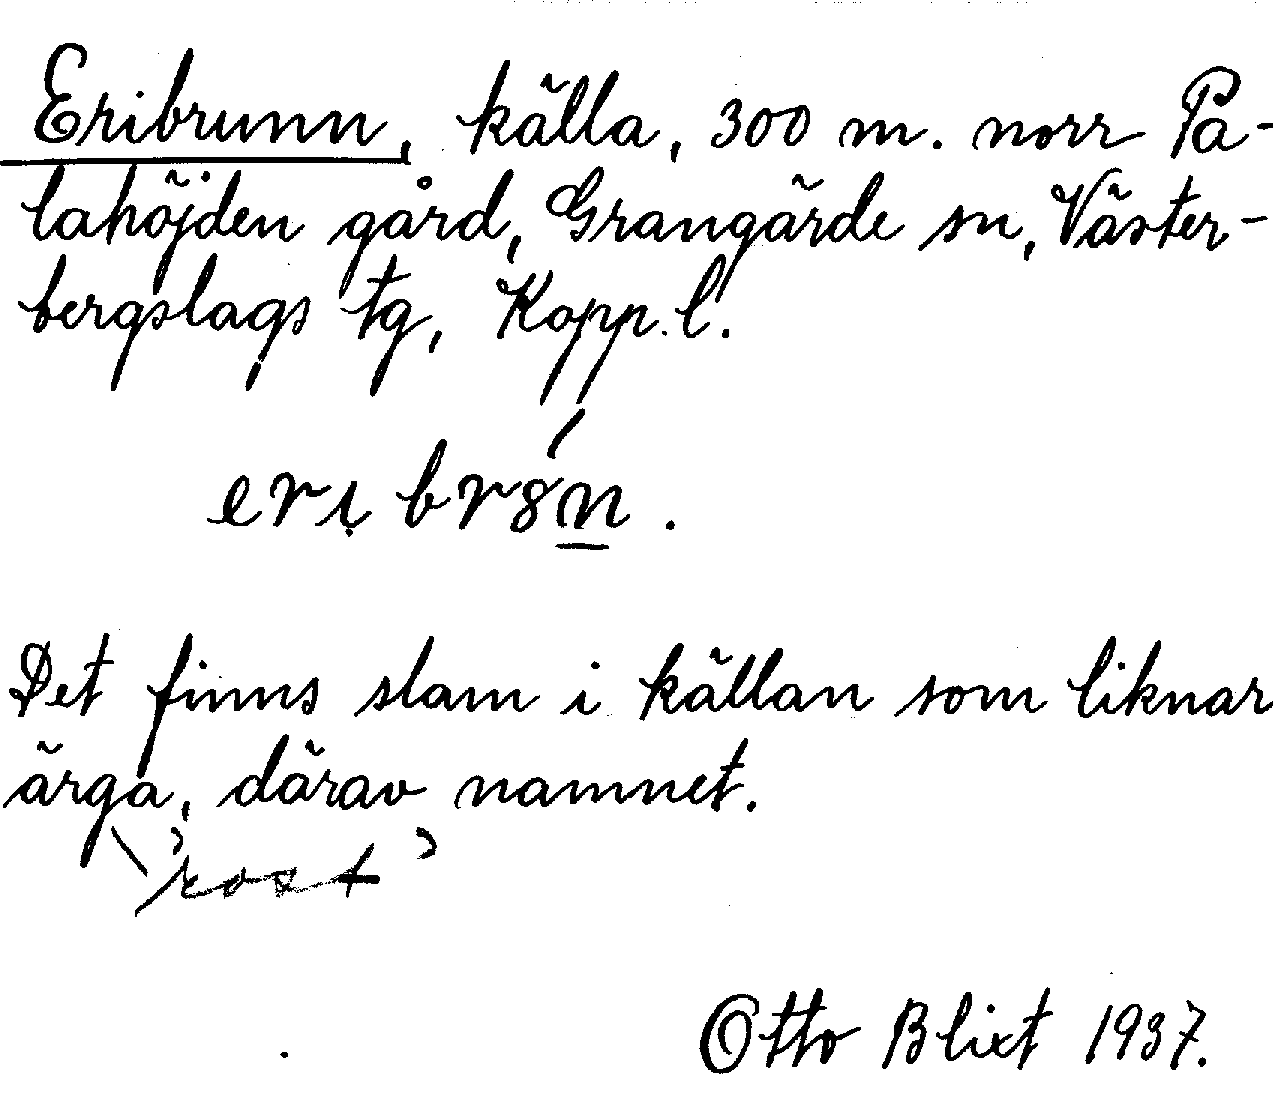 Eribrunn, källa, 300 m. norr Pa-
lahöjden gård, Grangärde sn, Väster-
bergslags tg, Kopp. l.
erị bró8n̲.
Det finns slam i källan som liknar
ärga, därav namnet.
\ ’rost’
Otto Blixt 1937.